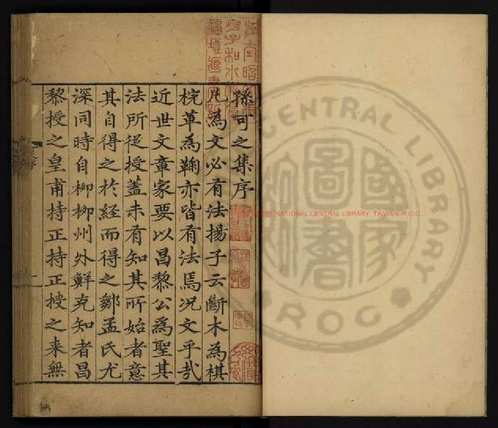 孫可之集序
凡為文必有法揚子云斷木為棋
梡革為鞠亦皆有法焉況文乎哉
近世文章家要以昌黎公為聖其
法所從授蓋未有知其所始者意
其自得之於經而得之鄒孟氏尤
深同時自柳柳州外鮮克知者昌
黎授之皇甫持正持正授之來無
NATIONAL CENTRAL LIBRARY, TAIWAN, R.O.C.
CENTRAL LIBRARY
ROC
國家圖書館